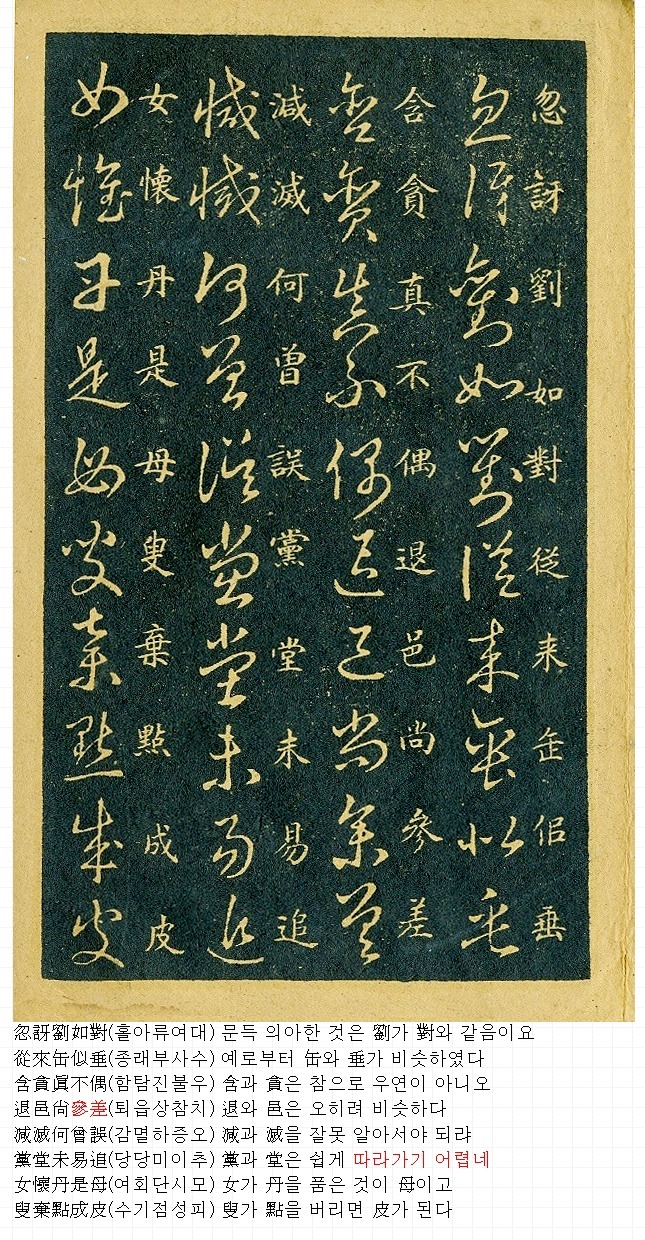 忽訝劉如對從来缶佀垂
忽訝劉如對從来缶似垂
含貪真不偶退邑尚參差
含貪真不偶退邑尚參差
減滅何曾誤黨堂未易追
減滅何曾誤黨堂未易追
女懷丹是母叟棄點成皮
女懷丹是母叟棄點成皮
忽訝劉如對(홀아류여대) 문득 의아한 것은 劉가 對와 같음이요
從來缶似垂(종래부사수) 예로부터 缶와 垂가 비슷하였다
含貪眞不偶(함탐진불우) 含과 貪은 참으로 우연이 아니오
退邑尙參差(퇴읍상참치) 退와 邑은 오히려 비슷하다
減滅何曾誤(감멸하증오) 減과 滅을 잘못 알아서야 되랴
黨堂未易追(당당미이추) 黨과 堂은 쉽게 따라가기 어렵네
女懷丹是母(여회단시모) 女가 丹을 품은 것이 母이고
叟棄點成皮(수기점성피) 叟가 點을 버리면 皮가 된다